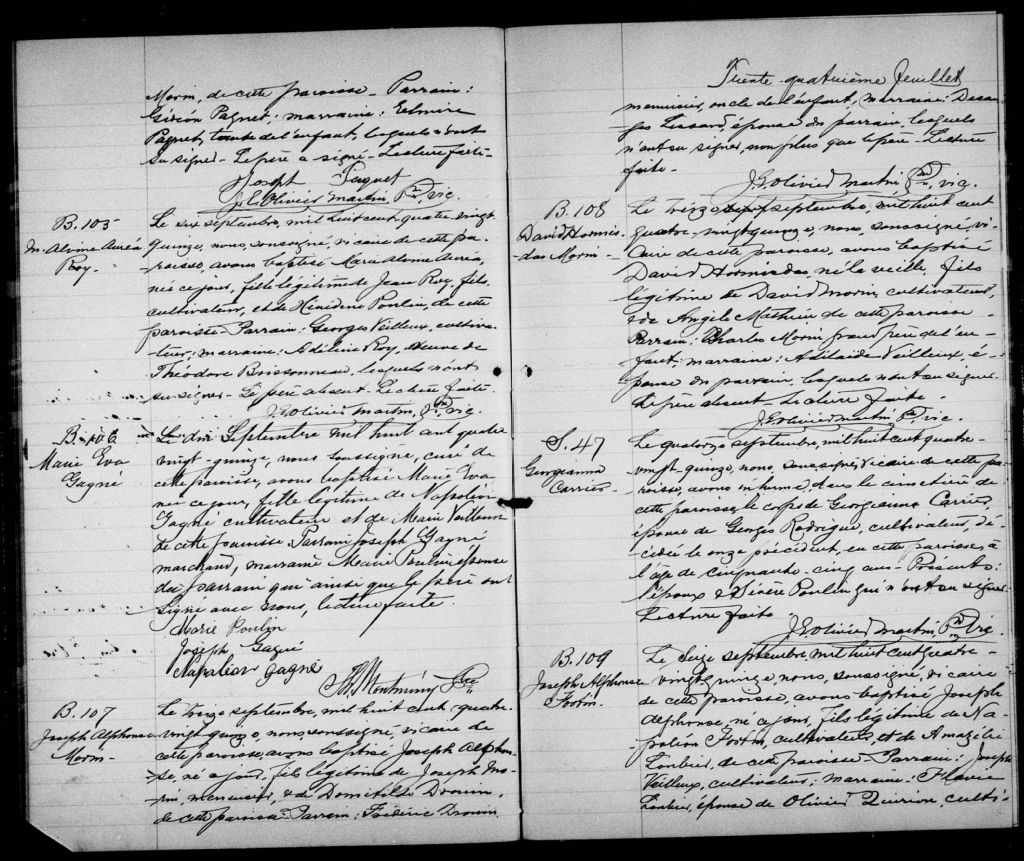 Morin, de cette paroisse - Parrain:
Gédéon Paquet; marraine: Edmire
Paquet, tante de l'enfant, lesquels n'ont
su signer - Le père a signé - Lecture faite -
Joseph Paquet
J. E. Olivier Martin, Ptre, vic.
B. 105
M. Alvine Auréa
Roy.
Le six septembre, mil huit cent quatre vingt
quinze, nous, soussigné, vicaire de cette pa-
roisse, avons baptisé Marie Alvine Auréa,
née ce jour, fille légitime de Jean Roy, fils,
cultivateur, et de Henédine Poulin, de cette
paroisse - Parrain: Georges Veilleux, cultiva-
teur; marraine: Adéline Roy, veuve de
Théodore Boissonneau, lesquels n'ont
su signer - Le père absent - Lecture faite -
J. E. Olivier Martin, Ptre, vic.
B. 106
Marie Eva
Gagné
Le dix Septembre mil huit cent quatre
vingt-quinze, nous soussigné, curé de
cette paroisse, avons baptisé Marie Eva
née ce jour, fille légitime de Napoléon
Gagné cultivateur et de Marie Veilleux
de cette paroisse. Parrain Joseph Gagné
marchand, marraine Marie Poulin épouse
du parrain qui ainsi que le père ont
signé avec nous, lecture faite.
Marie Poulin
Joseph Gagné
Napoléon Gagné
Th. Montminy Ptre
B. 107
Joseph Alphonse
Morin -
Le treize septembre, mil huit cent quatre
vingt quinze, nous, soussigné, vicaire de
cette paroisse, avons baptisé Joseph Alphon-
se, né ce jour, fils légitime de Joseph Mo-
rin, menuisier, & de Domitille Drouin,
de cette paroisse - Parrain: Frédéric Drouin,
Trente-quatrième feuillet
menuisier, oncle de l'enfant, marraine: Desan-
ges Lessard, épouse du parrain, lesquels
n'ont su signer, non plus que le père - Lecture
faite -
J. E. Olivier Martin Ptre, vic.
B. 108
David Hormis-
das Morin -
Le treize septembre, mil huit cent
quatre-vingt quinze, nous, soussigné, vi-
caire de cette paroisse, avons baptisé
David Hormisdas, né la veille, fils
légitime de David Morin, cultivateur,
& de Angèle Mathieu de cette paroisse -
Parrain: Charles Morin grand père de l'en-
fant; marraine: Adélaide Veilleux, é-
pouse du parrain, lesquels n'ont su signer.
Le père absent - Lecture faite -
J. E. Olivier Martin Ptre, vic.
S. 47
Georgianna
Carrier
Le quatorze septembre, mil huit cent quatre-
vingt-quinze, nous, soussigné, vicaire de cette pa-
roisse, avons inhumé, dans le cimetière de
cette paroisse, le corps de Georgianna Carrier,
épouse de Georges Rodrigue, cultivateur, dé-
cédée le onze précédent, en cette paroisse, à
l'âge de cinquante-cinq ans - Présents:
l'époux & Sévère Poulin qui n'ont su signer.
Lecture faite -
J. E. Olivier Martin, Ptre, Vic.
B. 109
Joseph Alphonse
Fortin -
Le seize septembre, mil huit cent quatre-
vingt quinze, nous, soussigné, vicaire
de cette paroisse, avons baptisé Joseph
Alphonse, né ce jour, fils légitime de Na-
poléon Fortin, cultivateur, et de Amazélie
Loubier, de cette paroisse - Parrain: Joseph
Veilleux, cultivateur: marraine: Flavie
Loubier, épouse de Olivier Quirion, culti-